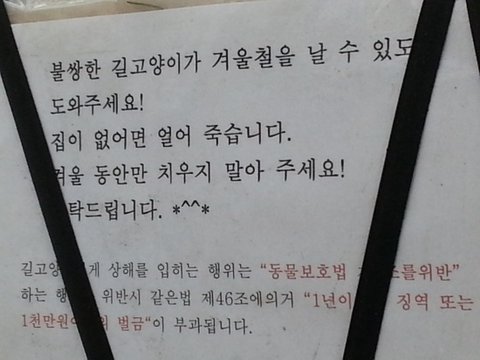 불쌍한 길고양이가 겨울철을 날 수 있도
도와주세요!
집이 없어면 얼어 죽습니다.
겨울 동안만 치우지 말아 주세요!
탁드립니다. *^^*
길고양 게 상해를 입히는 행위는 "동물보호법 를위반"
하는 위반시 같은법 제46조에의거 "1년이 징역 또는
1천만원 벌금"이 부과됩니다.